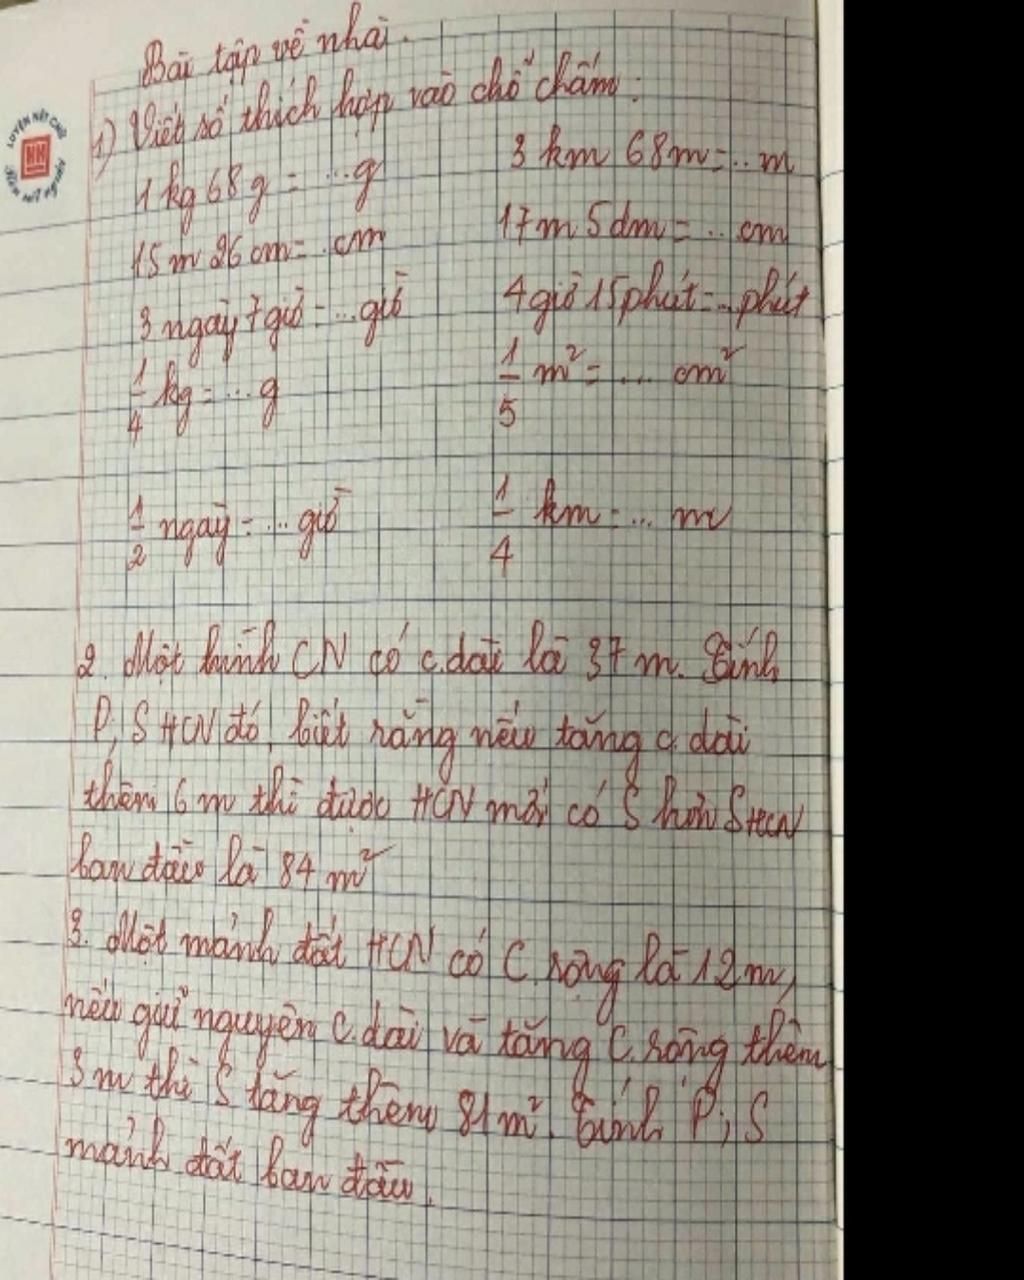 Bài tập về nhà.
LUYỆN NÉT CHỮ
Rèn nết người
1) Viết số thích hợp vào chỗ chấm:
1 kg 68 g = ...g 3 km 68m = ... m
15 m 26 cm = .cm 17m 5dm = .. cm
3 ngày 7 giờ = ...giờ 4 giờ 15 phút = ...phút
1/4 kg = ... g 1/5 m² = ... cm²
1/2 ngày = ... giờ 1/4 km = ... m
2. Một hình CN có c.dài là 37 m. Tính
P, S HCN đó, biết rằng nếu tăng c.dài
thêm 6 m thì được HCN mới có S hơn SHCN
ban đầu là 84 m²
3. Một mảnh đất HCN có C.rộng là 12m,
nếu giữ nguyên c.dài và tăng C.rộng thêm
3 m thì S tăng thêm 81m². Tính P; S
mảnh đất ban đầu.